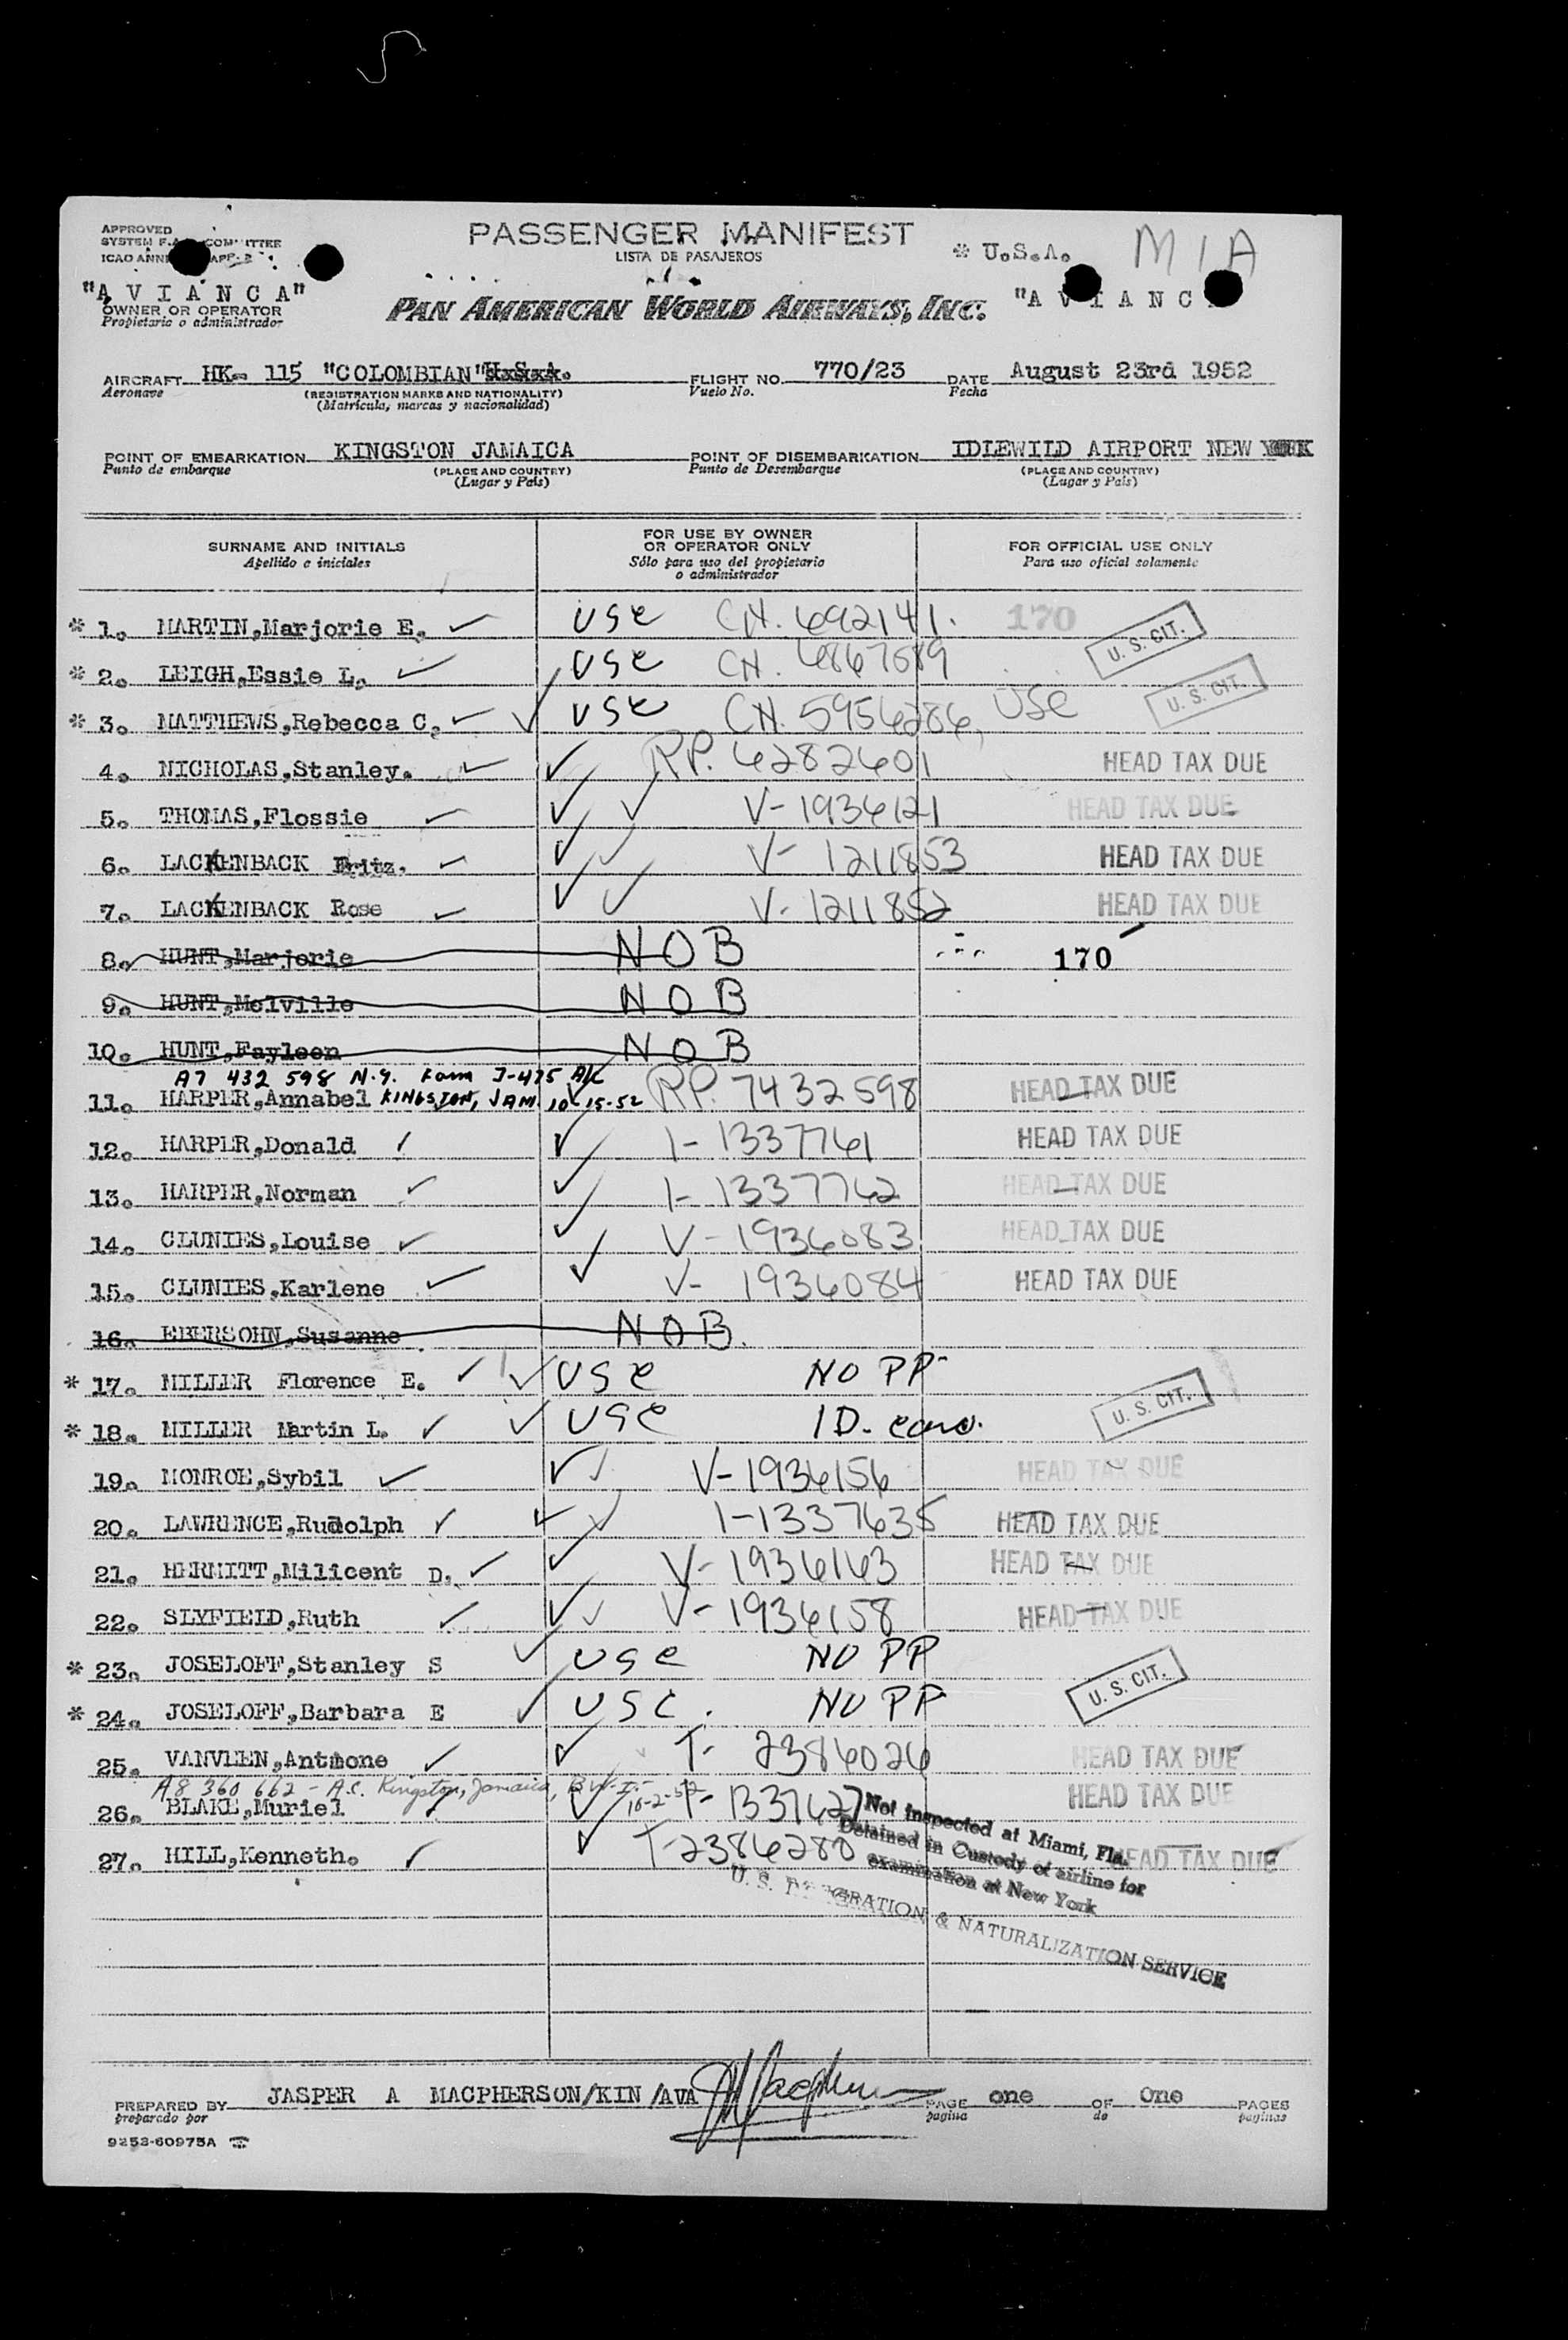 APPROVED
PASSENGER MANIFEST
LISTA DE PASAJEROS
* U.S.A.
MIA
"A V I A N C A"
OWNER OR OPERATOR
Propietario o administrador
PAN AMERICAN WORLD AIRWAYS, INC.
"A V I A N C
AIRCRAFT HK- 115 "COLOMBIAN" FLIGHT NO. 770/23 DATE August 23rd 1952
Aeronave (REGISTRATION MARKS AND NATIONALITY) Vuelo No. Fecha
(Matrícula, marcas y nacionalidad)
POINT OF EMBARKATION KINGSTON JAMAICA POINT OF DISEMBARKATION IDLEWILD AIRPORT NEW YORK
Punto de embarque (PLACE AND COUNTRY) Punto de Desembarque (PLACE AND COUNTRY)
(Lugar y País) (Lugar y País)
SURNAME AND INITIALS
Apellido e iniciales
FOR USE BY OWNER
OR OPERATOR ONLY
Sólo para uso del propietario
o administrador
FOR OFFICIAL USE ONLY
Para uso oficial solamente
* 1. MARTIN,Marjorie E. USC CN. 692141. 170 U. S. CIT.
* 2. LEIGH,Essie L. USC CN.
* 3. MATTHEWS,Rebecca C. USC CN. 5956286, USC U. S. CIT.
4. NICHOLAS,Stanley. RP. 6282601 HEAD TAX DUE
5. THOMAS,Flossie V-1936121 HEAD TAX DUE
6. LACKENBACK Fritz. V- 1211853 HEAD TAX DUE
7. LACKENBACK Rose V- 1211852 HEAD TAX DUE
8. HUNT,Marjorie NOB 170
9. HUNT,Melville NOB
10. HUNT,Fayleen NOB
A7 432 598 N.Y. Form I-475 A/C
11. HARPER,Annabel KINGSTON, JAM. 10-15-52 RP. 7432598 HEAD TAX DUE
12. HARPER,Donald I-1337761 HEAD TAX DUE
13. HARPER,Norman I-1337762 HEAD TAX DUE
14. CLUNIES,Louise V-1936083 HEAD TAX DUE
15. CLUNIES,Karlene V- 1936084 HEAD TAX DUE
16. EBERSOHN,Susanne NOB.
* 17. MILLER Florence E. USC NO PP
* 18. MILLER Martin L. USC ID. card. U. S. CIT.
19. MONROE,Sybil V-1936156 HEAD TAX DUE
20. LAWRENCE,Rudolph I-1337635 HEAD TAX DUE
21. HERMITT,Milicent D. V-1936163 HEAD TAX DUE
22. SLYFIELD,Ruth V-1936158 HEAD TAX DUE
* 23. JOSELOFF,Stanley S USC NO PP
* 24. JOSELOFF,Barbara E USC. NO PP U. S. CIT.
25. VANVEEN,Antoone T- 2386026 HEAD TAX DUE
A8 360 662 - A.C. Kingston, Jamaica, B.W.I.- 10-2-52
26. BLAKE,Muriel 1337627 HEAD TAX DUE
27. HILL,Kenneth. T-2386280 HEAD TAX DUE
Not inspected at Miami, Fla.
Detained in Custody of airline for
examination at New York
U. S. IMMIGRATION & NATURALIZATION SERVICE
PREPARED BY JASPER A MACPHERSON/KIN /AVA PAGE one OF One PAGES
preparado por pagina de paginas
9253-60975A